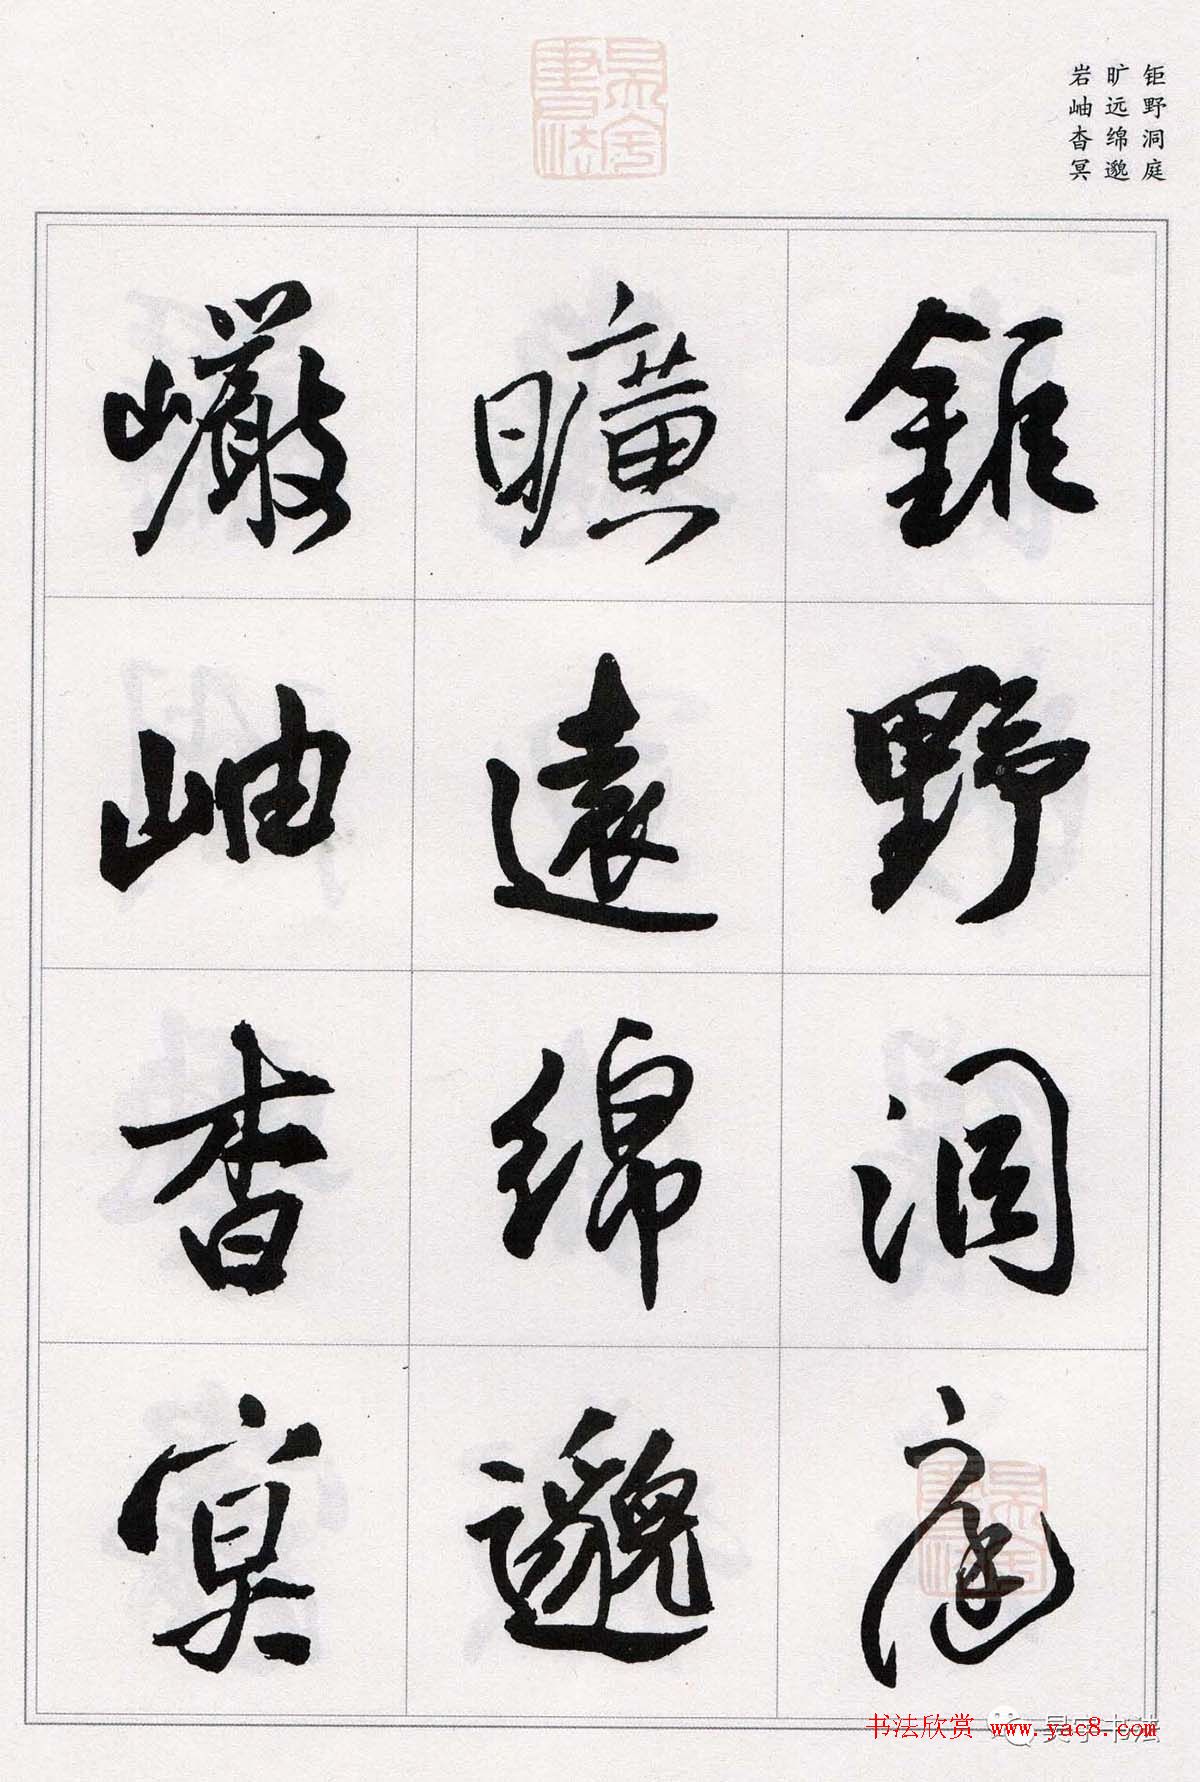 钜野洞庭
旷远绵邈
岩岫杳冥
鉅野洞庭
曠遠綿邈
巖岫杳冥
书法欣赏 www.yac8.com